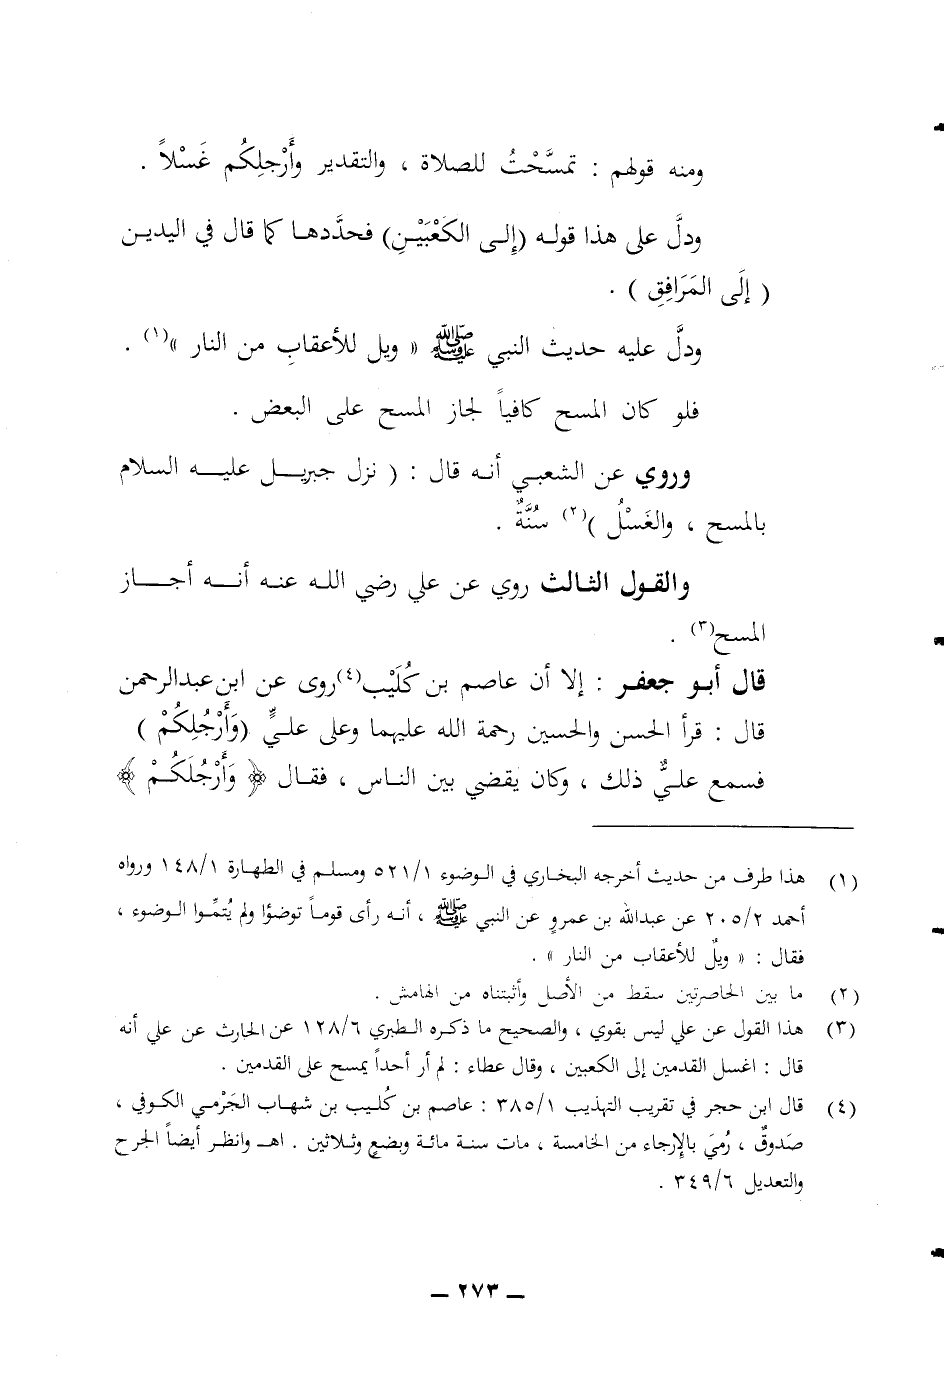 ومنه قولهم : تمسَّحْتُ للصلاة ، والتقدير وأَرْجلِكُم غَسْلاً .
ودلَّ على هذا قوله (إلى الكَعْبَيْنِ) فحدَّدها كما قال في اليدين
( إلَى المَرَافِقِ ) .
ودلَّ عليه حديث النبي ﷺ « ويل للأعقابِ من النار »(١) .
فلو كان المسح كافياً لجاز المسح على البعض .
وروي عن الشعبي أنه قال : ( نزل جبريل عليه السلام
بالمسح ، والغَسْلُ )(٢) سُنَّةٌ .
والقول الثالث روي عن علي رضي الله عنه أنه أجاز
المسح(٣) .
قال أبو جعفر : إلا أن عاصم بن كُلَيْب(٤) روى عن ابن عبدالرحمن
قال : قرأ الحسن والحسين رحمة الله عليهما وعلى عليٍّ (وَأَرْجُلِكُمْ )
فسمع عليٌّ ذلك ، وكان يقضي بين الناس ، فقال ﴿ وَأَرْجُلَكُمْ ﴾
(١) هذا طرف من حديث أخرجه البخاري في الوضوء ٥٢١/١ ومسلم في الطهارة ١٤٨/١ ورواه
أحمد ٢٠٥/٢ عن عبدالله بن عمروٍ عن النبي ﷺ ، أنه رأى قوماً توضؤا ولم يُتمُّوا الوضوء ،
فقال : « ويلٌ للأعقاب من النار » .
(٢) ما بين الحاصرتين سقط من الأصل وأثبتناه من الهامش .
(٣) هذا القول عن علي ليس بقوي ، والصحيح ما ذكره الطبري ١٢٨/٦ عن الحارث عن علي أنه
قال : اغسل القدمين إلى الكعبين ، وقال عطاء : لم أر أحداً يمسح على القدمين .
(٤) قال ابن حجر في تقريب التهذيب ٣٨٥/١ : عاصم بن كُليب بن شهاب الجَرْمي الكوفي ،
صَدوقٌ ، رُميَ بالإرجاء من الخامسة ، مات سنة مائة وبضعٍ وثلاثين . اهـ وانظر أيضاً الجرح
والتعديل ٣٤٩/٦ .
ــ ٢٧٣ ــ